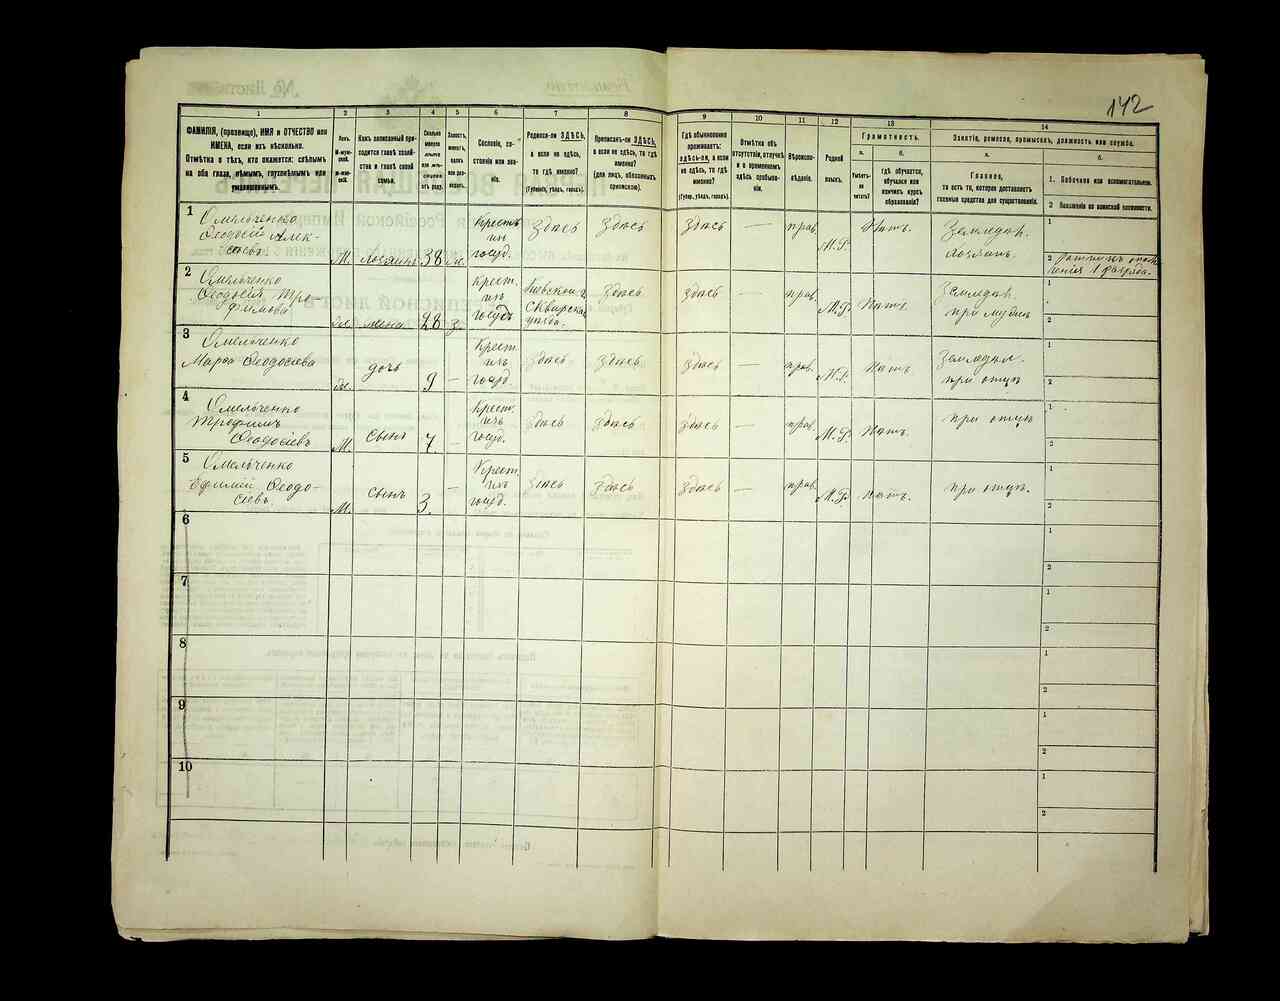 142
1 2 3 4 5 6 7 8 9 10 11 12 13 14
ФАМИЛІЯ, (прозвище), ИМЯ и ОТЧЕСТВО или
ИМЕНА, если ихъ нѣсколько.
Отмѣтка о тѣхъ, кто окажется: слѣпымъ
на оба глаза, нѣмымъ, глухонѣмымъ или
умалишеннымъ.
Полъ.
М-муж-
ской.
Ж-женскій.
Какъ записанный при-
ходится главѣ хозяй-
ства и главѣ своей
семьи.
Сколько
минуло
лѣтъ
или мѣ-
сяцевъ
отъ роду.
Холостъ,
женатъ,
вдовъ
или раз-
веденъ.
Сословіе, со-
стояніе или зва-
ніе.
Родился-ли ЗДѢСЬ,
а если не здѣсь,
то гдѣ именно?
(Губернія, уѣздъ, городъ).
Приписанъ-ли ЗДѢСЬ,
а если не здѣсь, то гдѣ
именно?
(для лицъ, обязанныхъ
припискою).
Гдѣ обыкновенно
проживаетъ:
здѣсь-ли, а если
не здѣсь, то гдѣ
именно?
(Губер., уѣздъ, городъ).
Отмѣтка объ
отсутствіи, отлучкѣ
и о временномъ
здѣсь пребыва-
ніи.
Вѣроиспо-
вѣданіе.
Родной
языкъ.
Грамотность.
а.
Умѣетъ-
ли
читать?
б.
гдѣ обучается,
обучался или
кончилъ курсъ
образованія?
Занятіе, ремесло, промыселъ, должность или служба.
а.
Главное,
то есть то, которое доставляетъ
главныя средства для существованія.
б.
1. Побочное или вспомогательное.
2 Положеніе по воинской повинности.
1 Омельченко
Ѳеодосій Алек-
сѣевъ М. хозяинъ 38 ж. Крестьянинъ госуд. здѣсь здѣсь здѣсь — прав. М.Р. Нѣтъ. Земледѣл. хозяинъ.
1
2 Ратникъ ополченія 1 разряда.
2 Омельченко
Ѳеодосія Тро-
фимова ж. жена 28 з. Крест. госуд. Кіевской г. Сквирскаго уѣзда. здѣсь здѣсь — прав. М.Р. Нѣтъ. Земледѣл. при мужѣ
1
2
3 Омельченко
Марѳа Ѳеодосіева ж. дочь 9 — Крест. госуд. здѣсь здѣсь здѣсь — прав. М.Р. Нѣтъ. Земледѣл. при отцѣ
1
2
4 Омельченко
Трофимъ
Ѳеодосіевъ М. сынъ 7. — Крест. госуд. здѣсь здѣсь здѣсь — прав. М.Р. Нѣтъ. при отцѣ
1
2
5 Омельченко
Ѳеодо-
сіевъ М. сынъ 3. — Крест. госуд. здѣсь здѣсь здѣсь — прав. М.Р. Нѣтъ. при отцѣ.
1
2
6
1
2
7
1
2
8
1
2
9
1
2
10
1
2